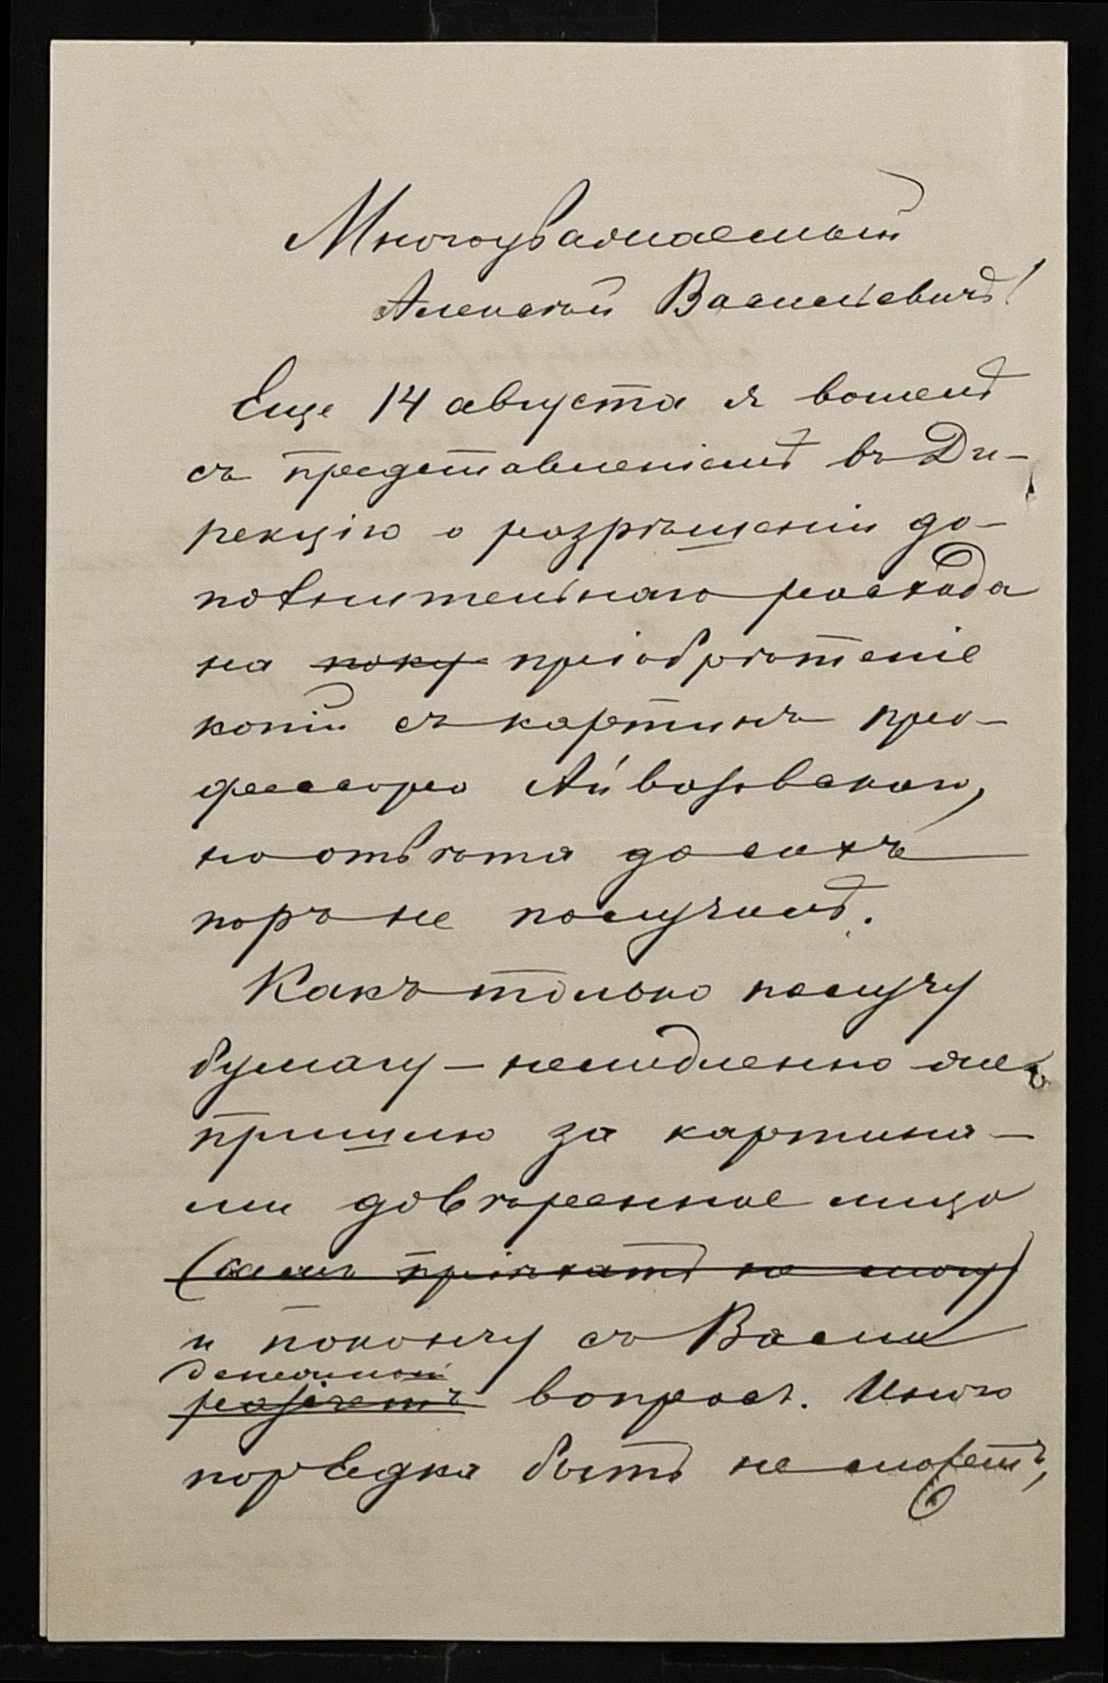 Многоуважаемый
Алексей Васильевичъ!
Еще 14 августа я вошелъ
съ представленіемъ въ Ди-
рекцію о разрѣшеніи до-
полнительнаго расхода
на поку пріобрѣтеніе
копій съ картинъ про-
фессора Айвазовскаго,
но отвѣта до сихъ
поръ не получилъ.
Какъ только получу
бумагу – немедленно же
пришлю за картина-
ми довѣренное лицо
(самъ пріѣхать не могу)
и покончу съ Вами
денежный
разсчетъ вопросъ. Иного
порядка быть не можетъ,